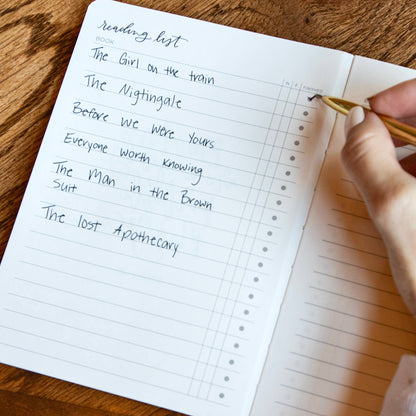 reading list
BOOK
The Girl on the train
The Nigtingale
Before We Were Yours
Everyone worth Knowing
The Man in the Brown
Suit
The lost Apothecary